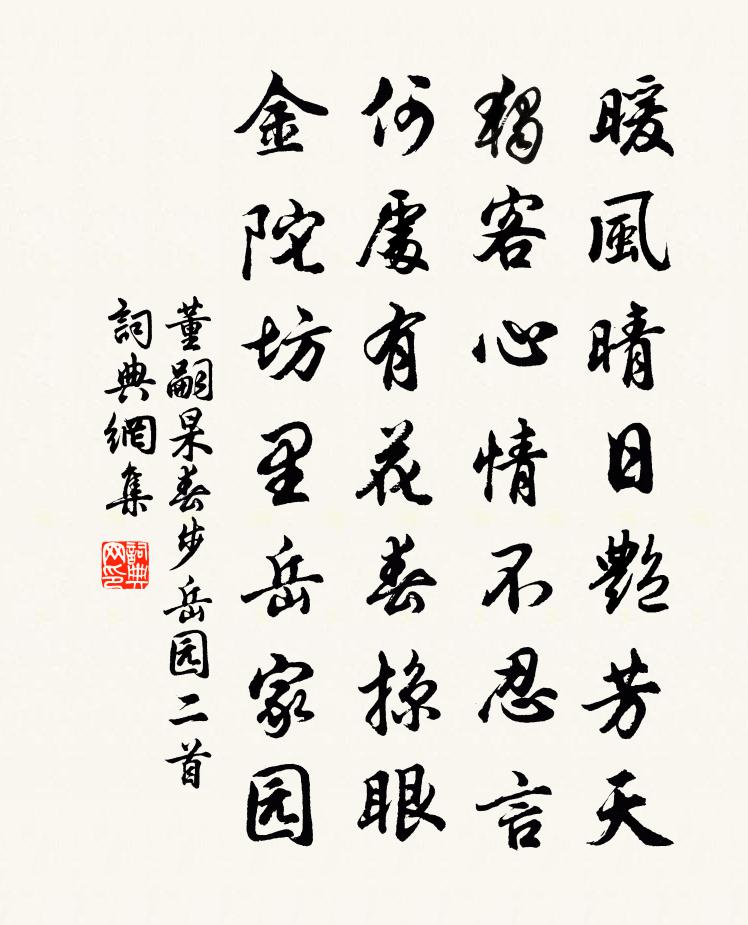 暖風晴日艷芳天
獨客心情不忍言
何處有花春掠眼
金陀坊里岳家园
董嗣杲春步岳园二首
詞典網集
詞典
网印